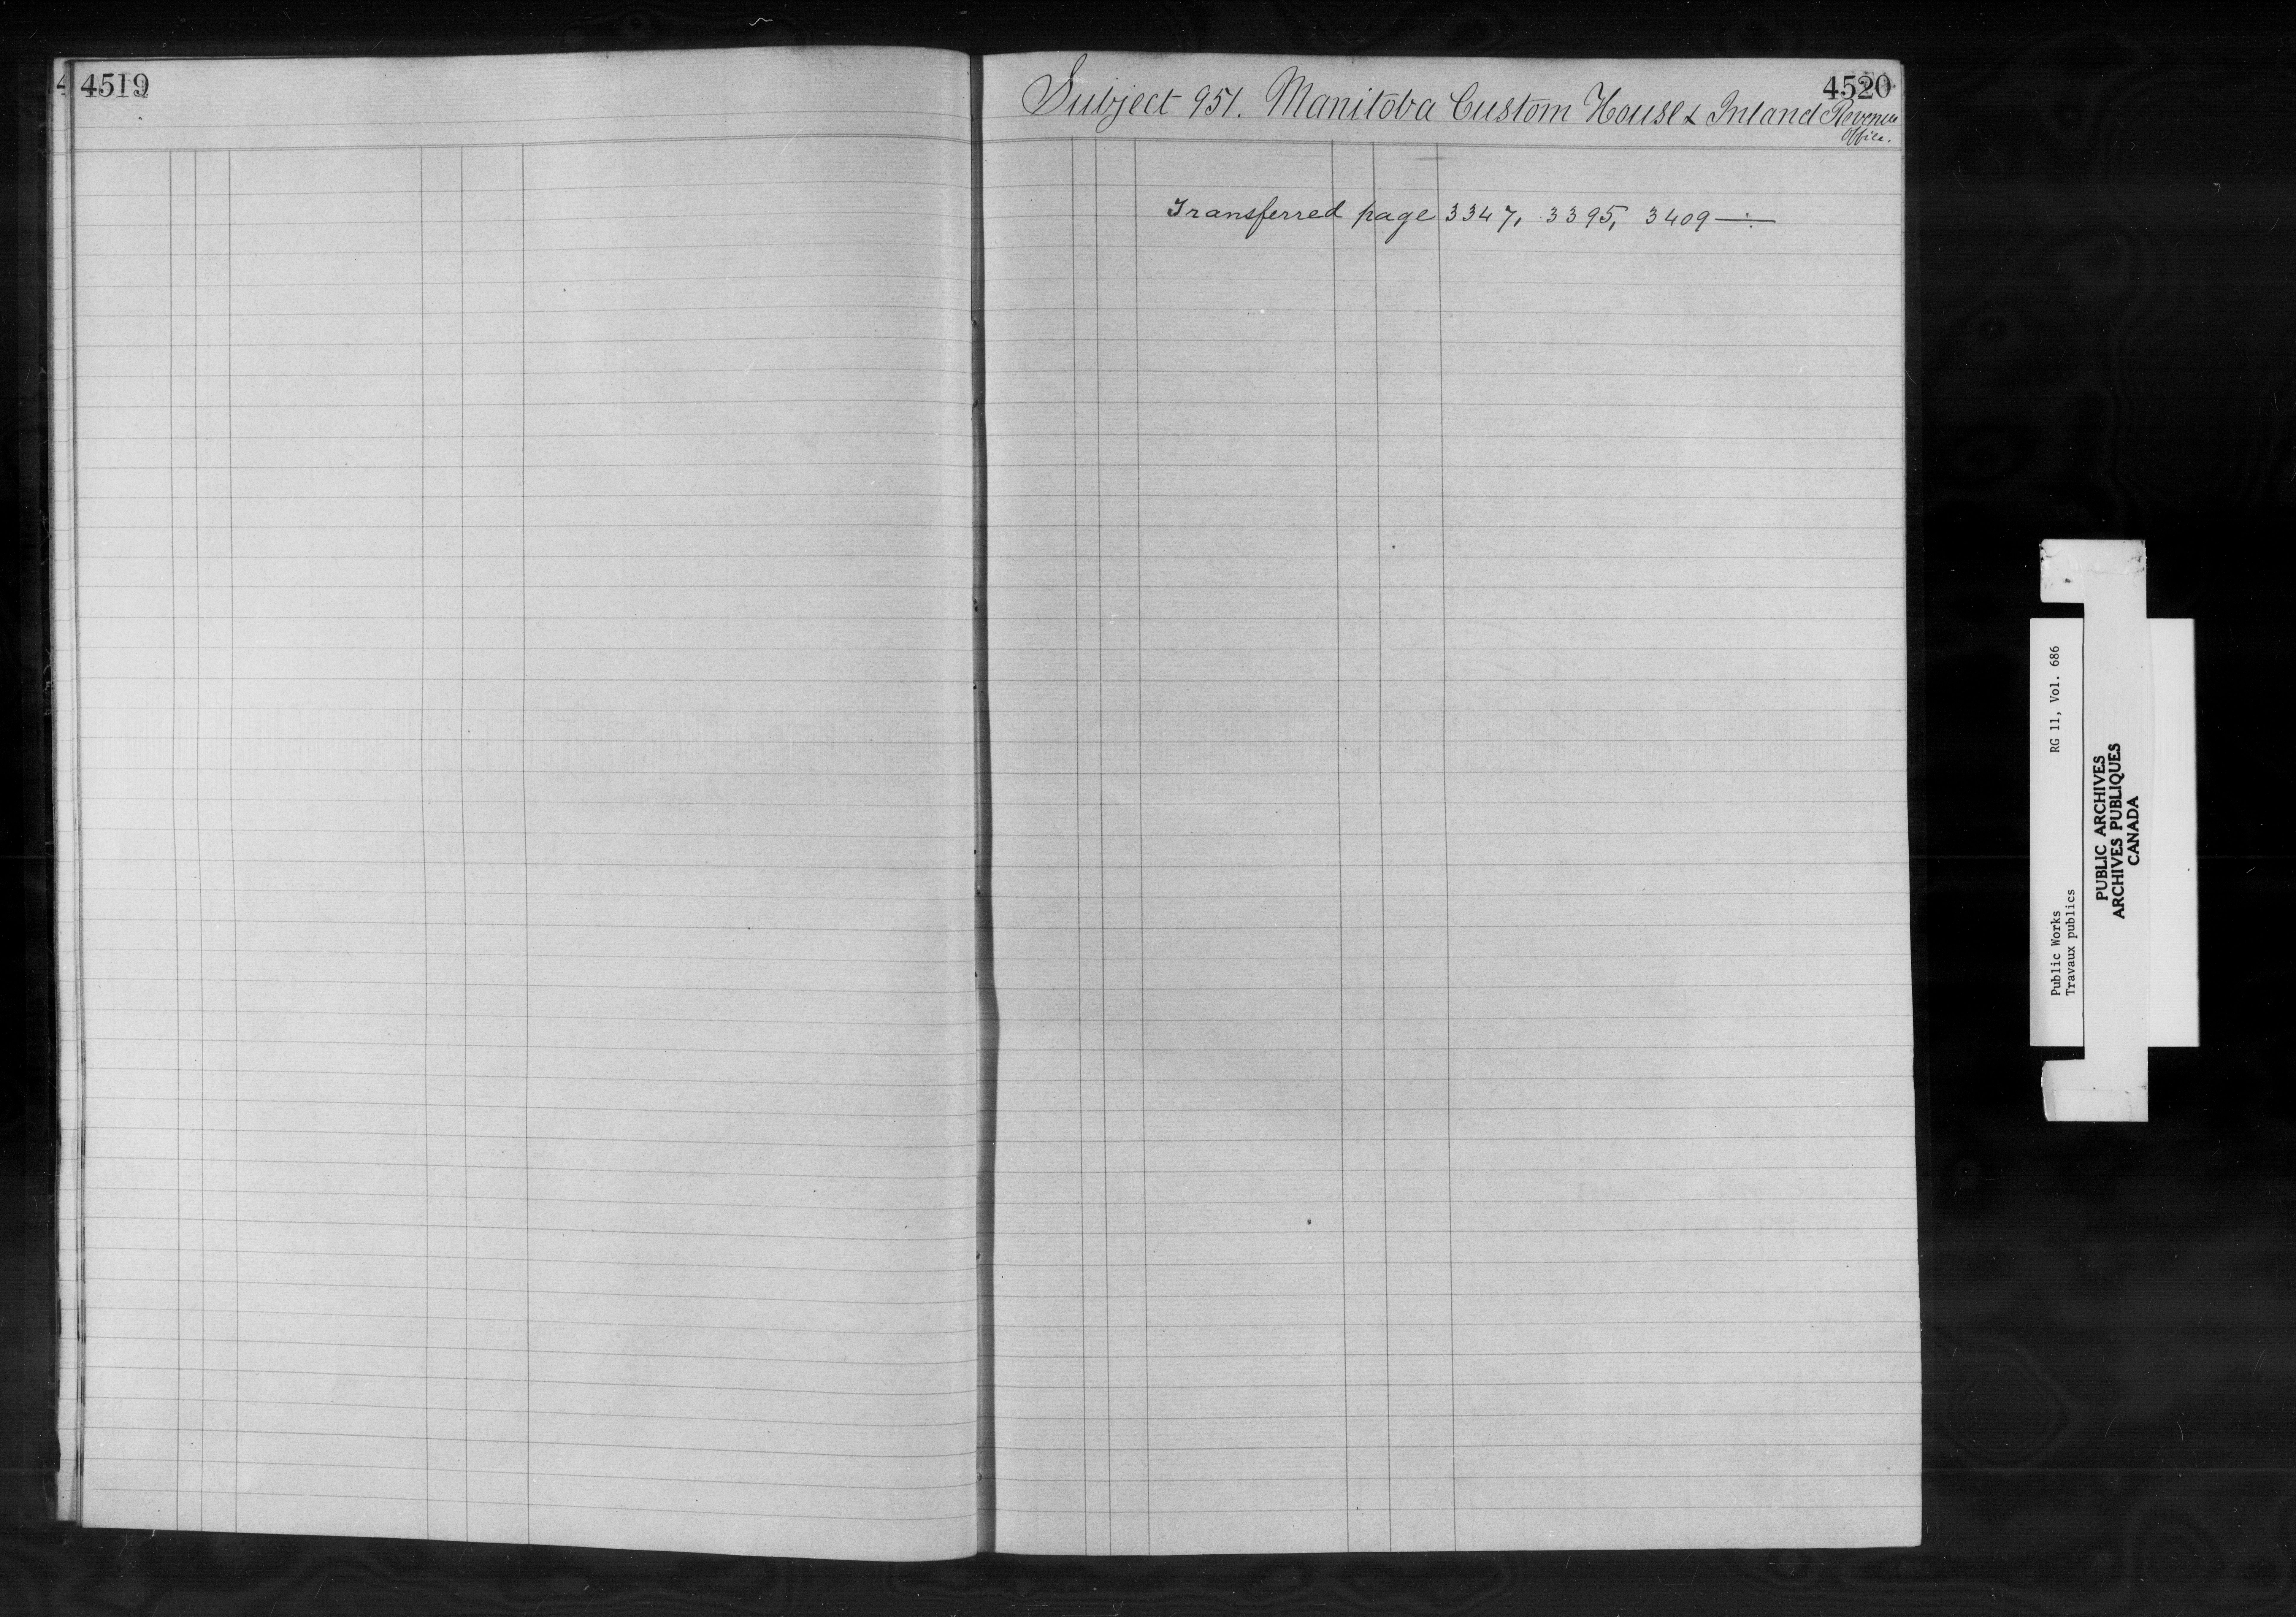 4519
4520
Subject 951. Manitoba Custom House & Inland Revenue
Office.
Transferred page 3347, 3395, 3409
Public Works RG 11, Vol. 686
Travaux publics
PUBLIC ARCHIVES
ARCHIVES PUBLIQUES
CANADA